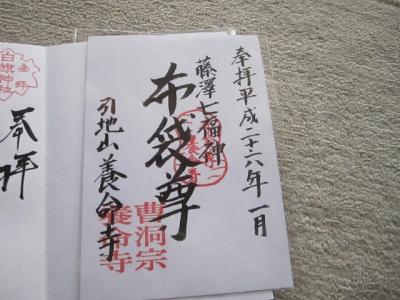 奉拝平成二十六年一月
藤澤七福神
布袋尊
引地山養命寺
曹洞宗
養命寺
奉拝
白旗神社